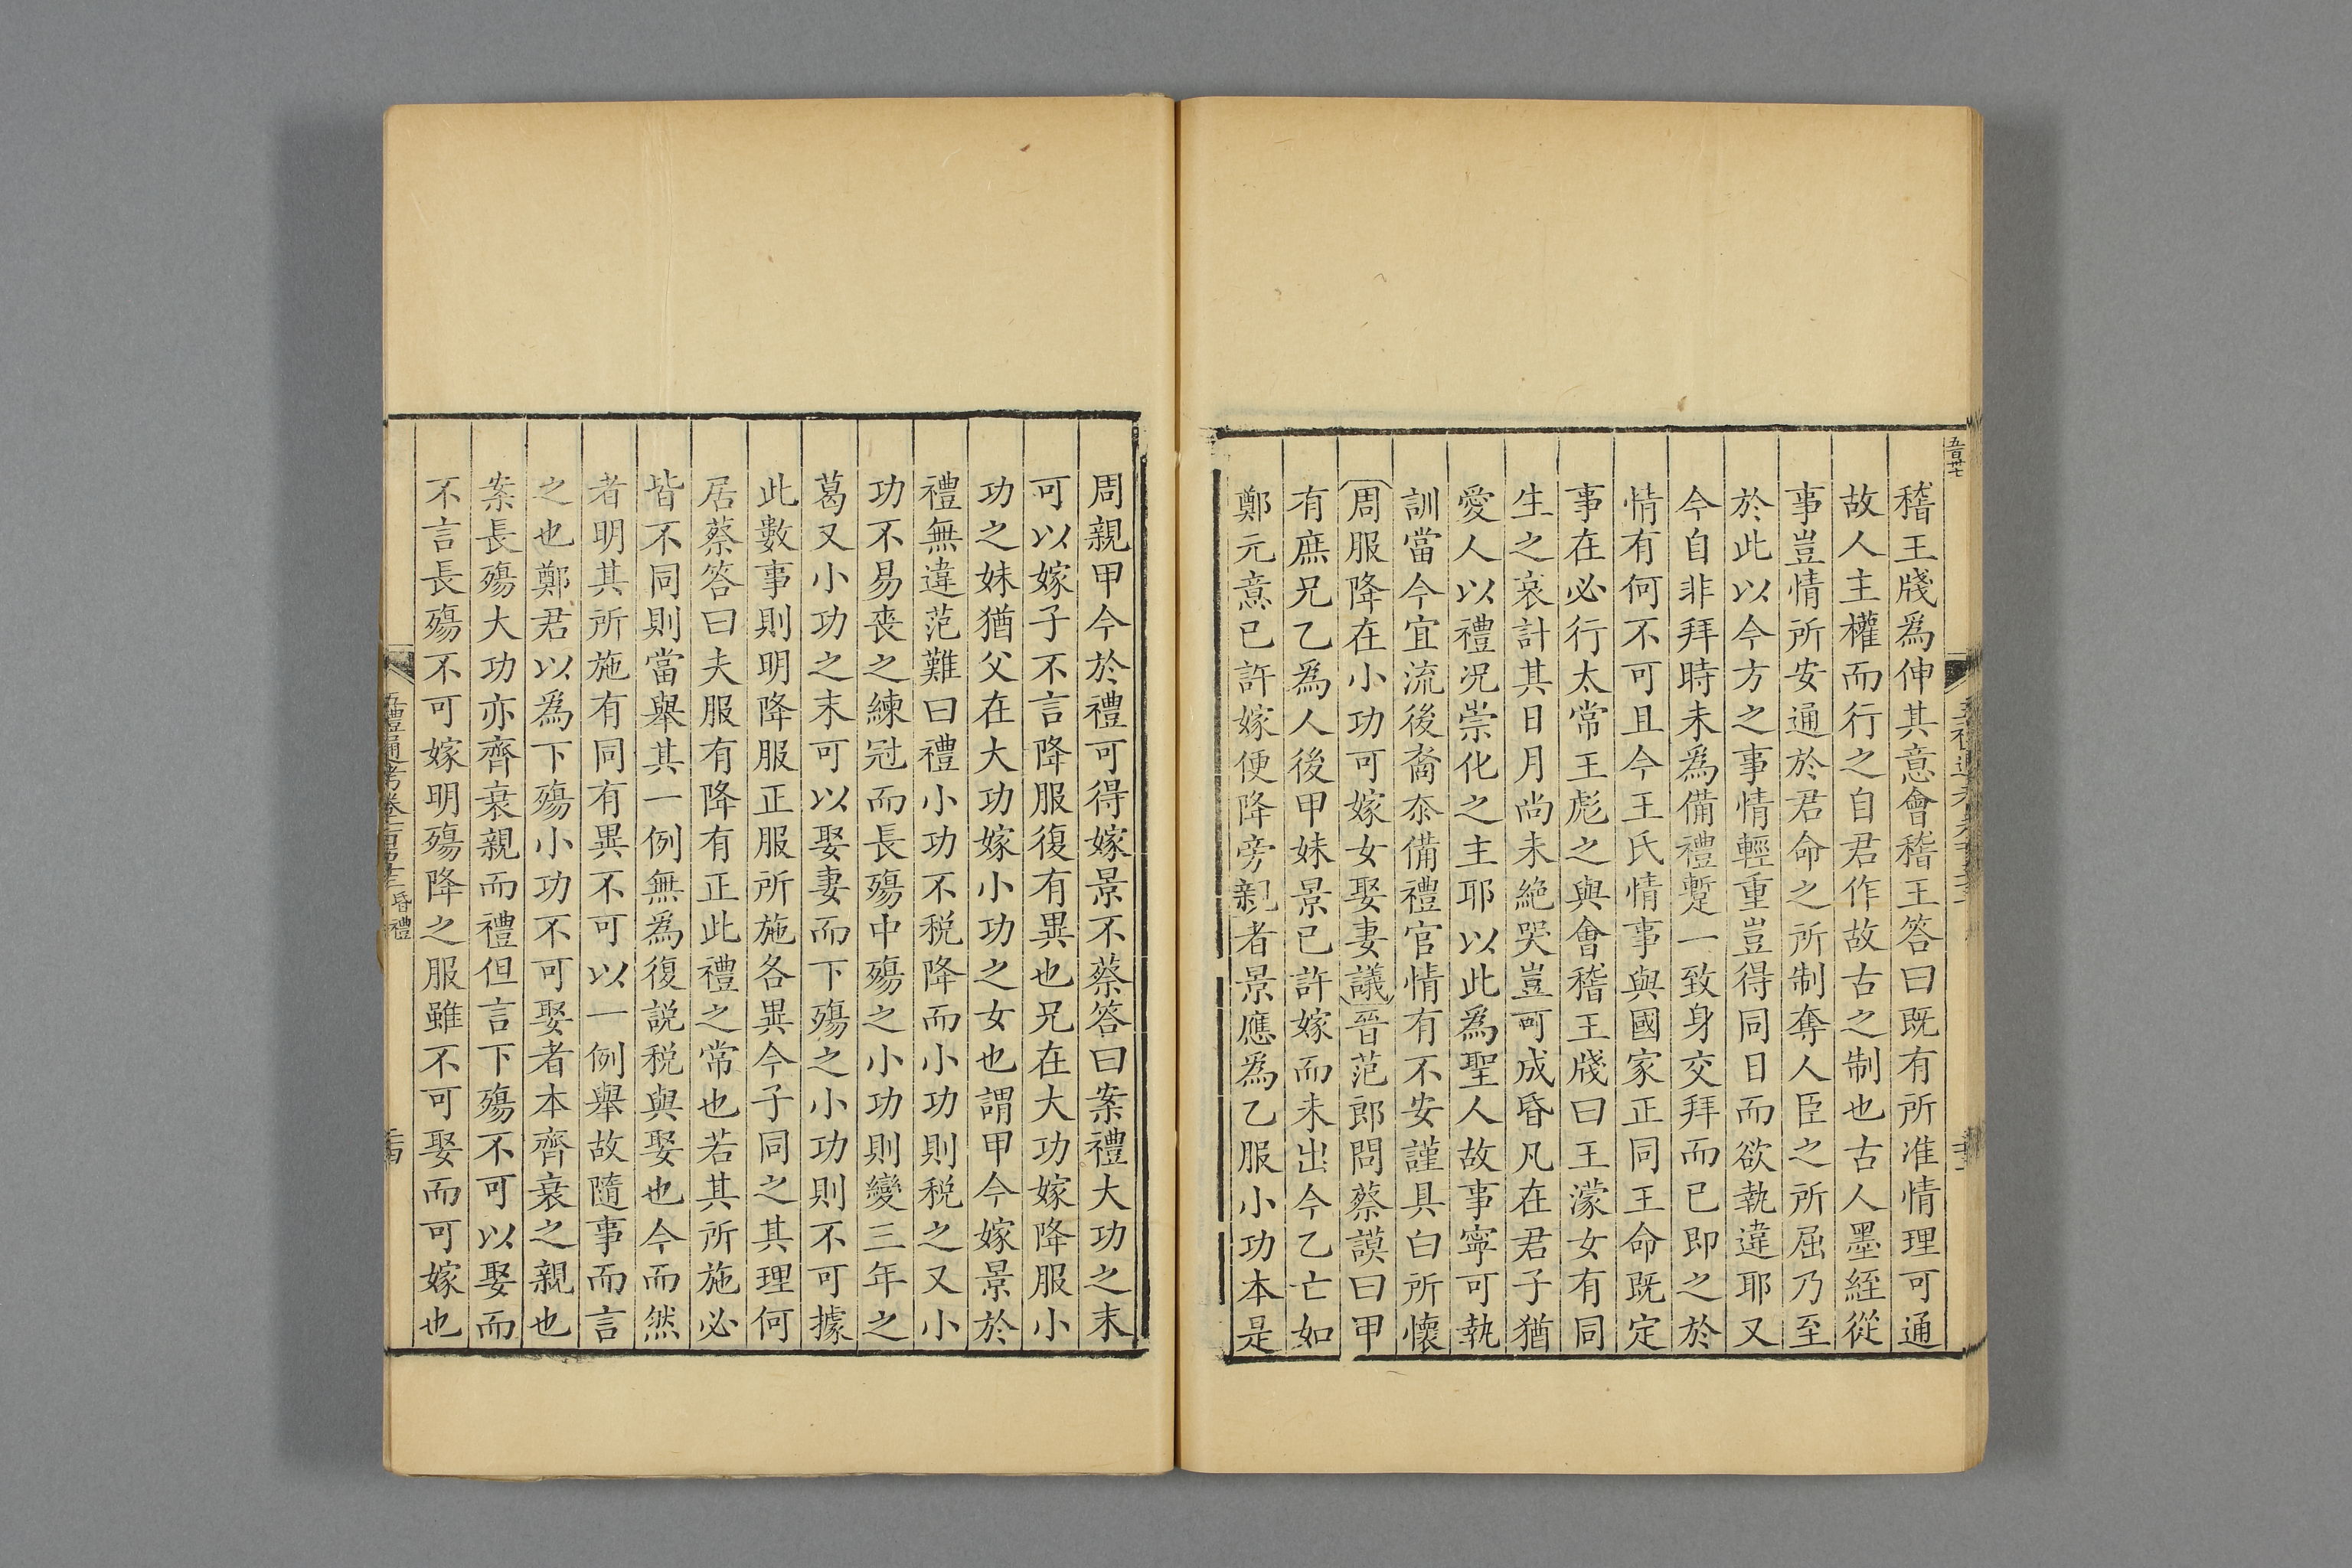 稽王牋爲伸其意會稽王答曰既有所准情理可通
故人主權而行之自君作故古之制也古人墨絰從
事豈情所安通於君命之所制奪人臣之所屈乃至
於此以今方之事情輕重豈得同日而欲執違耶又
今自非拜時未爲備禮蹔一致身交拜而已即之於
情有何不可且今王氏情事與國家正同王命既定
事在必行太常王彪之與會稽王牋曰王濛女有同
生之哀計其日月尚未絶哭豈可成昏凡在君子猶
愛人以禮況崇化之主耶以此爲聖人故事寧可執
訓當今宜流後裔忝備禮官情有不安謹具白所懷
周服降在小功可嫁女娶妻議晉范郎問蔡謨曰甲
有庶兄乙爲人後甲妹景已許嫁而未出今乙亡如
鄭元意已許嫁便降旁親者景應爲乙服小功本是
周親甲今於禮可得嫁景不蔡答曰案禮大功之末
可以嫁子不言降服復有異也兄在大功嫁降服小
功之妹猶父在大功嫁小功之女也謂甲今嫁景於
禮無違范難曰禮小功不稅降而小功則稅之又小
功不易喪之練冠而長殤中殤之小功則變三年之
葛又小功之末可以娶妻而下殤之小功則不可據
此數事則明降服正服所施各異今子同之其理何
居蔡答曰夫服有降有正此禮之常也若其所施必
皆不同則當舉其一例無爲復説稅與娶也今而然
者明其所施有同有異不可以一例舉故隨事而言
之也鄭君以爲下殤小功不可娶者本齊衰之親也
案長殤大功亦齊衰親而禮但言下殤不可以娶而
不言長殤不可嫁明殤降之服雖不可娶而可嫁也
五禮通考卷一百五十三 昏禮